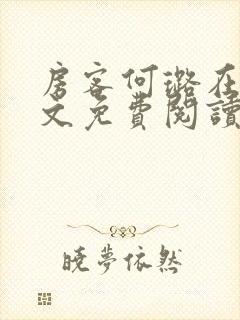 房客何璐在
文免費閱讀
曉夢依然